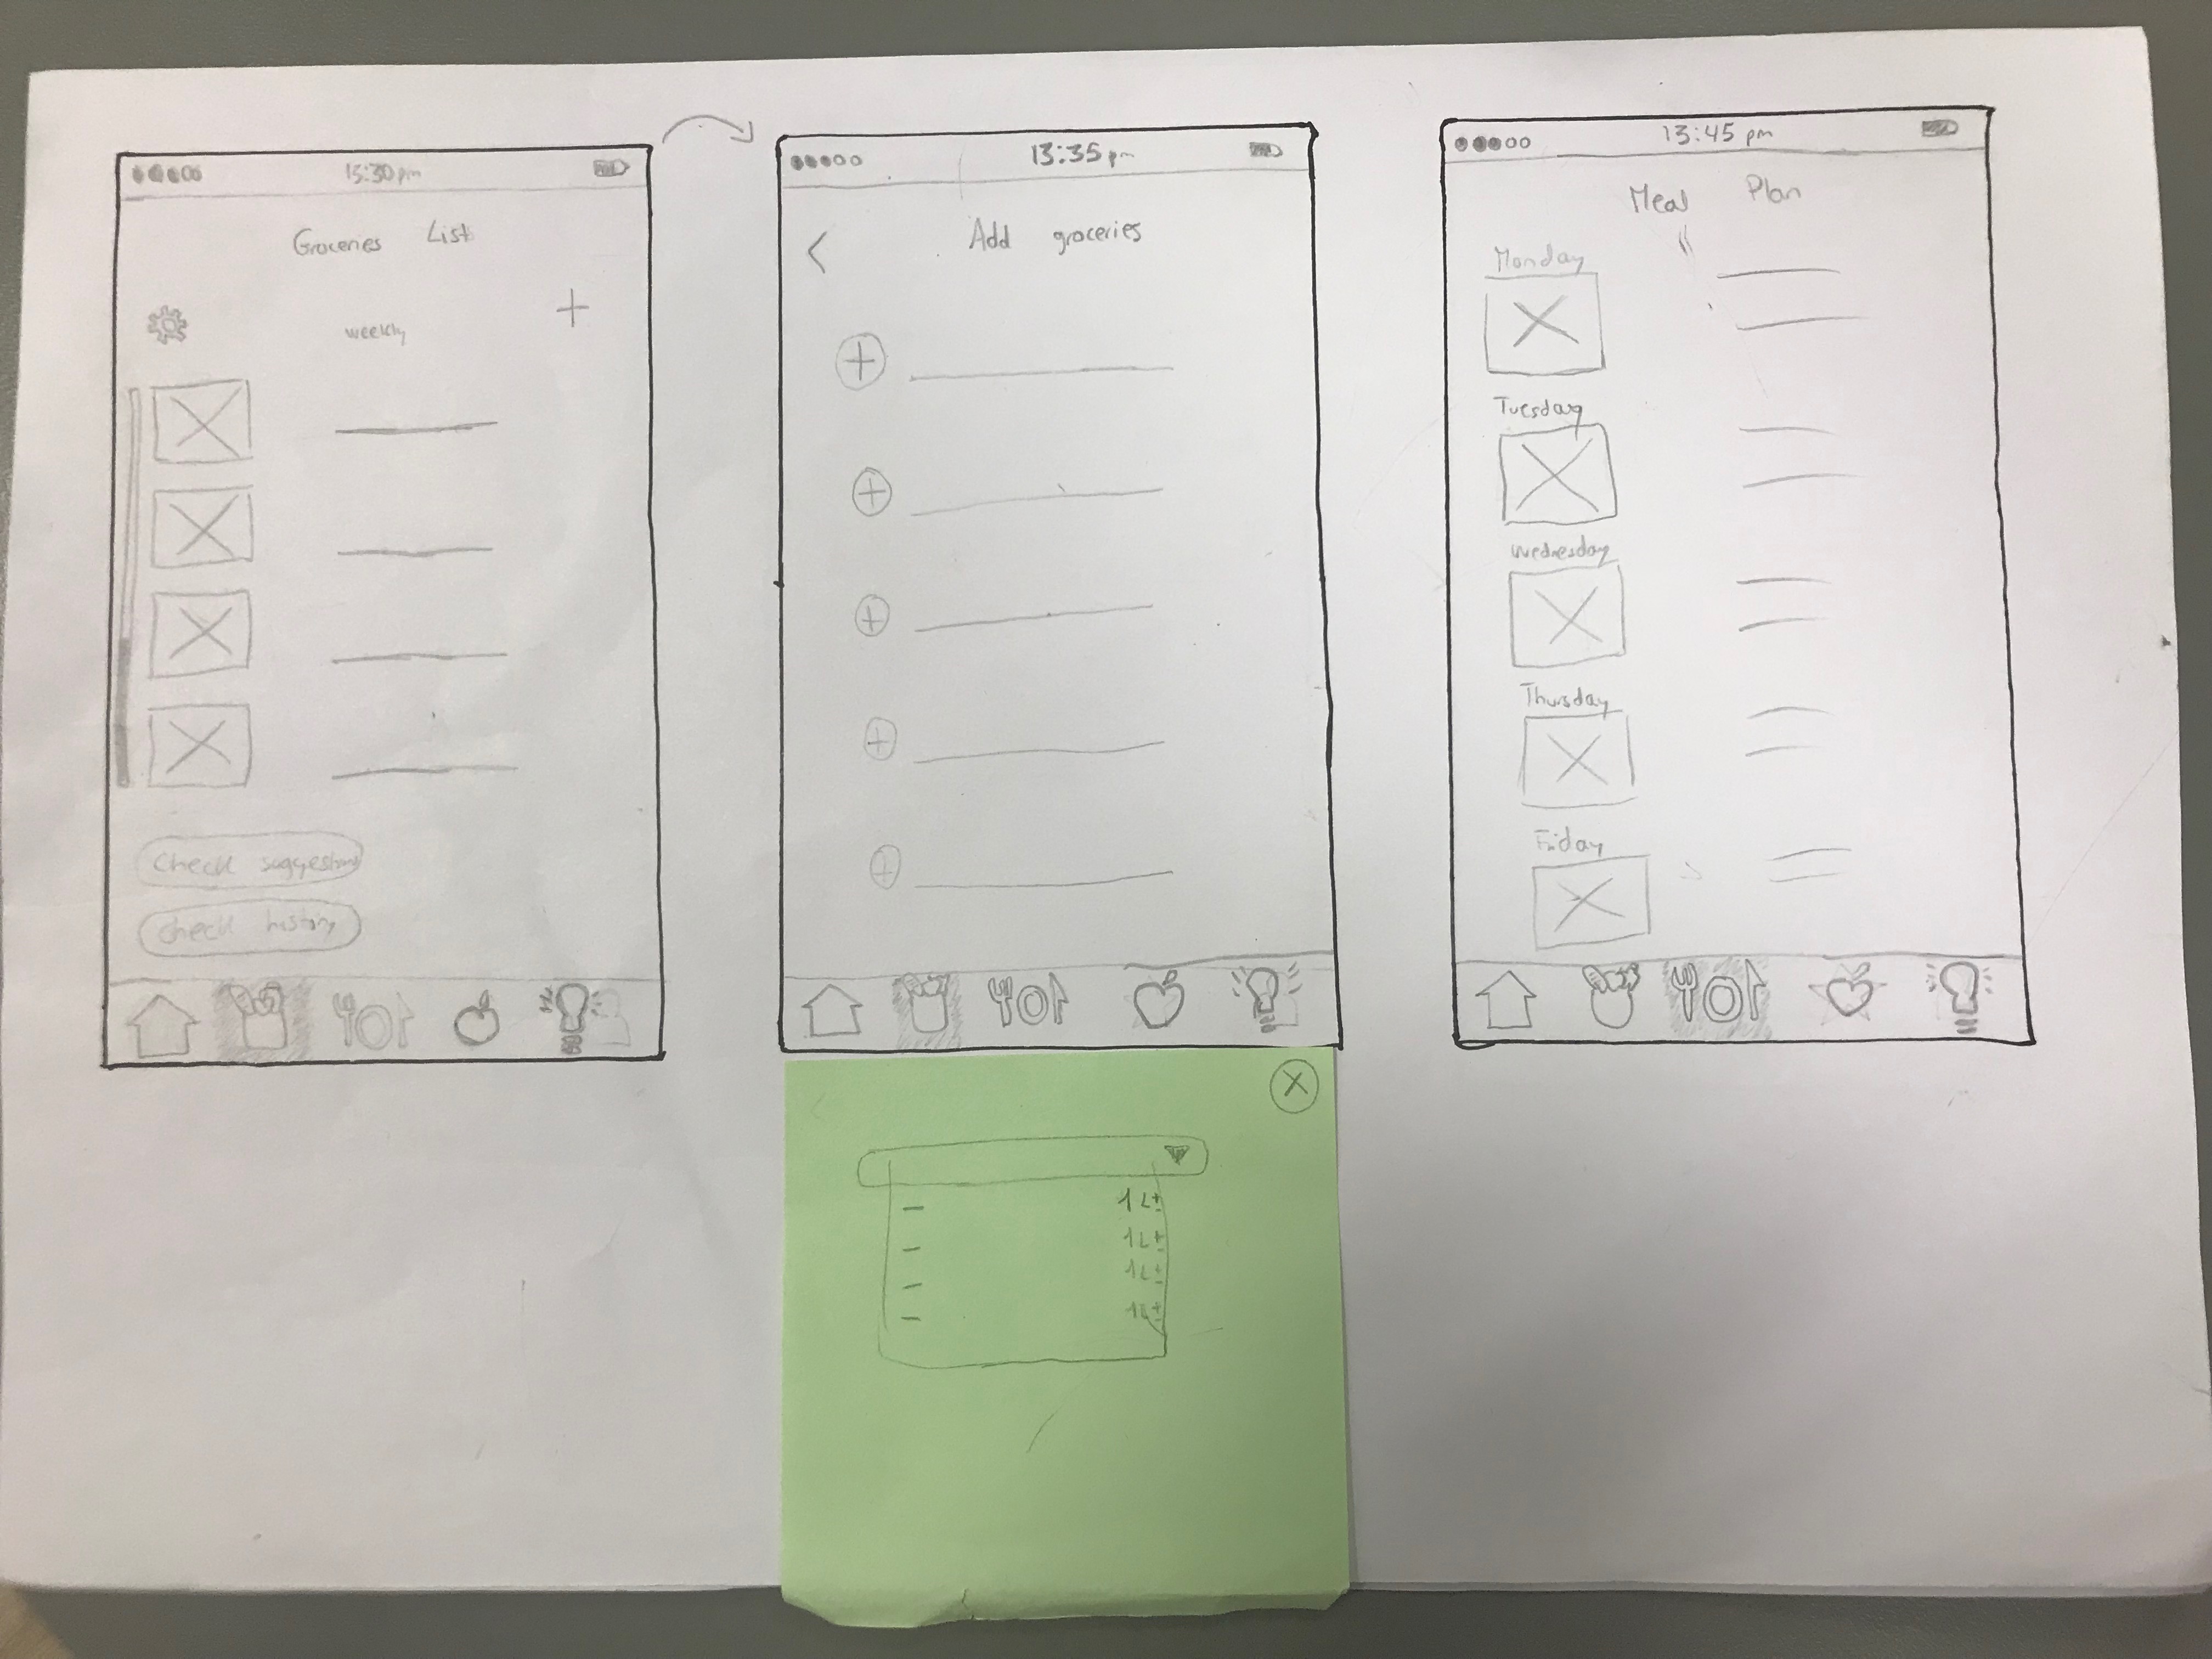 15:30 pm
Groceries List
weekly
check suggestions
check history
13:35 pm
Add groceries
1 L ±
1 L ±
1 L ±
1 L ±
13:45 pm
Meal Plan
Monday
Tuesday
Wednesday
Thursday
Friday